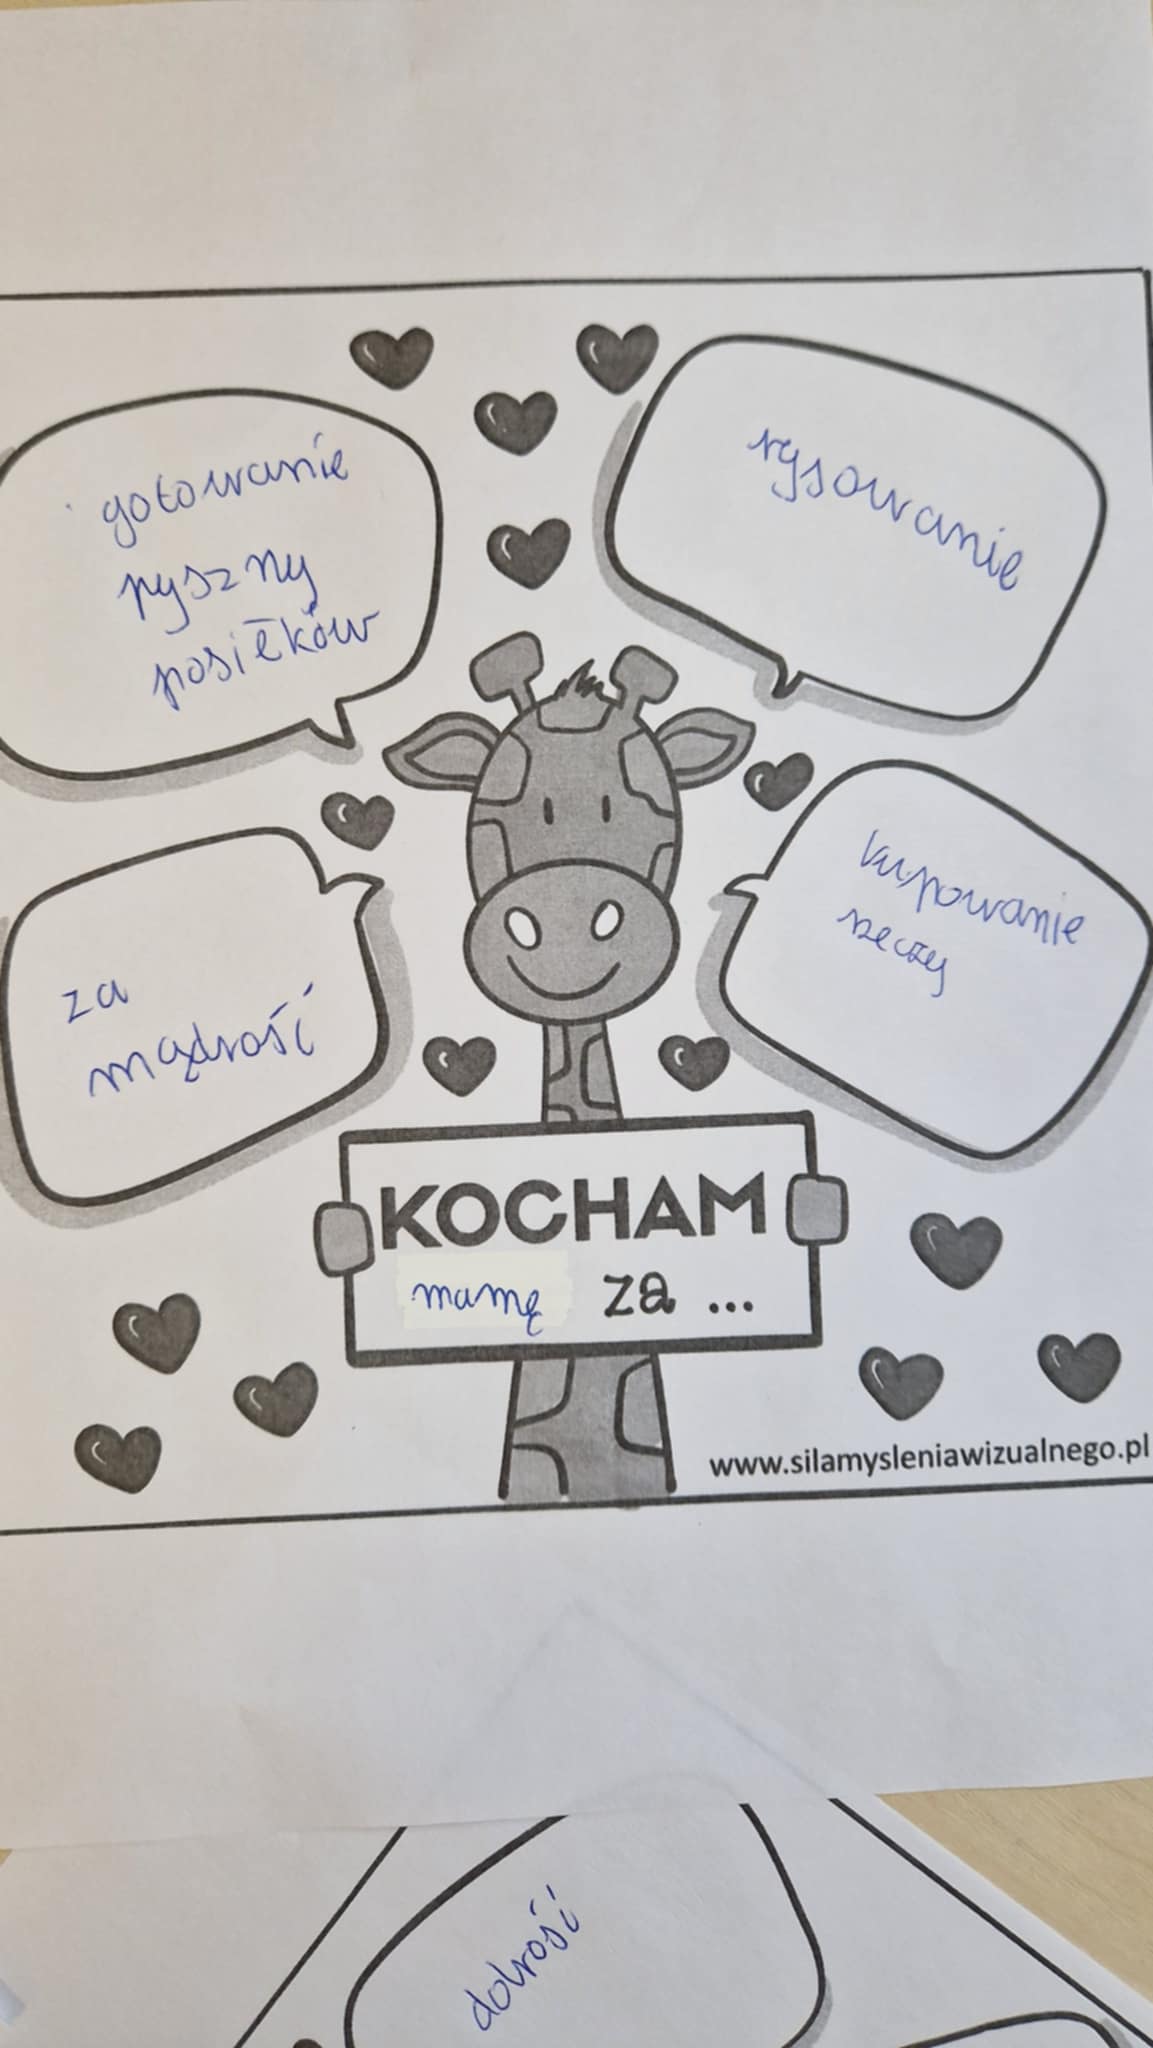 gotowanie
pyszny
posiłków
rysowanie
za
mądrość
kupowanie
rzeczy
KOCHAM
mamę za ...
www.silamysleniawizualnego.pl
dobrość